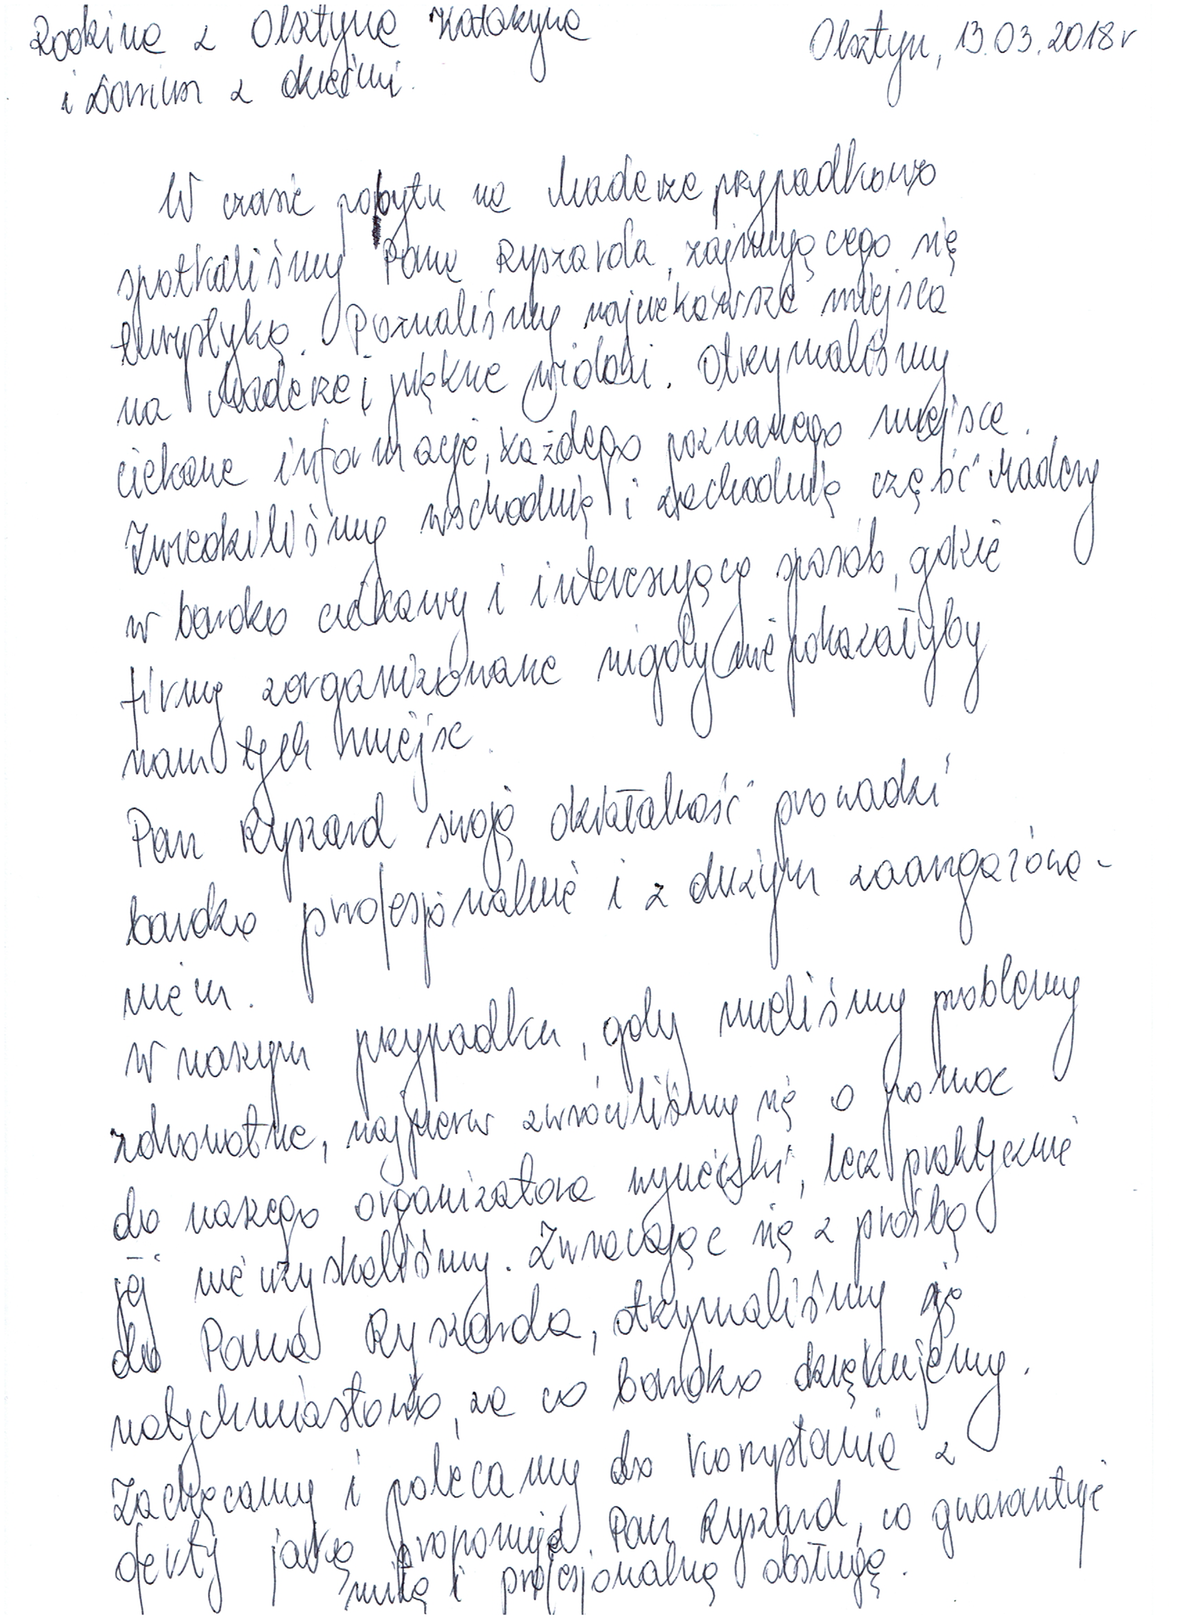 Rodzina z Olsztyna Katarzyna
Olsztyn, 13.03.2018r
i Damian z dziećmi.
W czasie pobytu na Maderze przypadkowo
spotkaliśmy Pana Ryszarda, zajmującego się
turystyką. Poznaliśmy najciekawsze miejsca
na Maderze i piękne widoki. Otrzymaliśmy
ciekawe informacje, każdego poznanego miejsca.
Zwiedziliśmy wschodnią i zachodnią część Madery
w bardzo ciekawy i interesujący sposób, gdzie
firmy zorganizowane nigdy nie pokazałyby
nam tych miejsc.
Pan Ryszard swoją działalność prowadzi
bardzo profesjonalnie i z dużym zaangażowa-
niem.
W naszym przypadku, gdy mieliśmy problemy
zdrowotne, najpierw zwróciliśmy się o pomoc
do naszego organizatora wycieczki, lecz praktycznie
jej nie uzyskaliśmy. Zwracając się z prośbą
do Pana Ryszarda, otrzymaliśmy ją
natychmiastowo, za co bardzo dziękujemy.
Zachęcamy i polecamy do korzystania z
oferty jaką proponuje Pan Ryszard, co gwarantuje
miłą i profesjonalną obsługę.